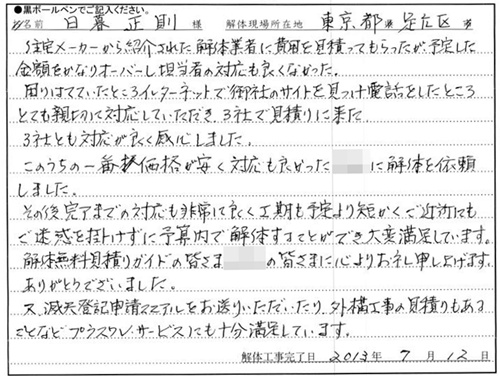 ●黒ボールペンでご記入ください。
お名前 日暮 正則 様 解体現場所在地 東京都 足立区
住宅メーカーから紹介された解体業者に費用を見積ってもらったが予定した
金額をかなりオーバーし担当者の対応も良くなかった。
困りはてていたところインターネットで御社のサイトを見つけ電話をしたところ
とても親切に対応していただき、3社で見積りに来た
3社とも対応が良く感心しました。
このうちの一番 価格が安く対応も良かった に解体を依頼
しました。
その後完了までの対応も非常に良く工期も予定より短かくご近所にも
ご迷惑を掛けずに予算内で解体することができ大変満足しています。
解体無料見積りガイドの皆さま の皆さまに心よりお礼申し上げます。
ありがとうございました。
又、滅失登記申請マニアルをお送りいただいたり、外構工事の見積りもある
ことなどプラスワンサービスにも十分満足しています。
解体工事完了日 2013年 7月 12日